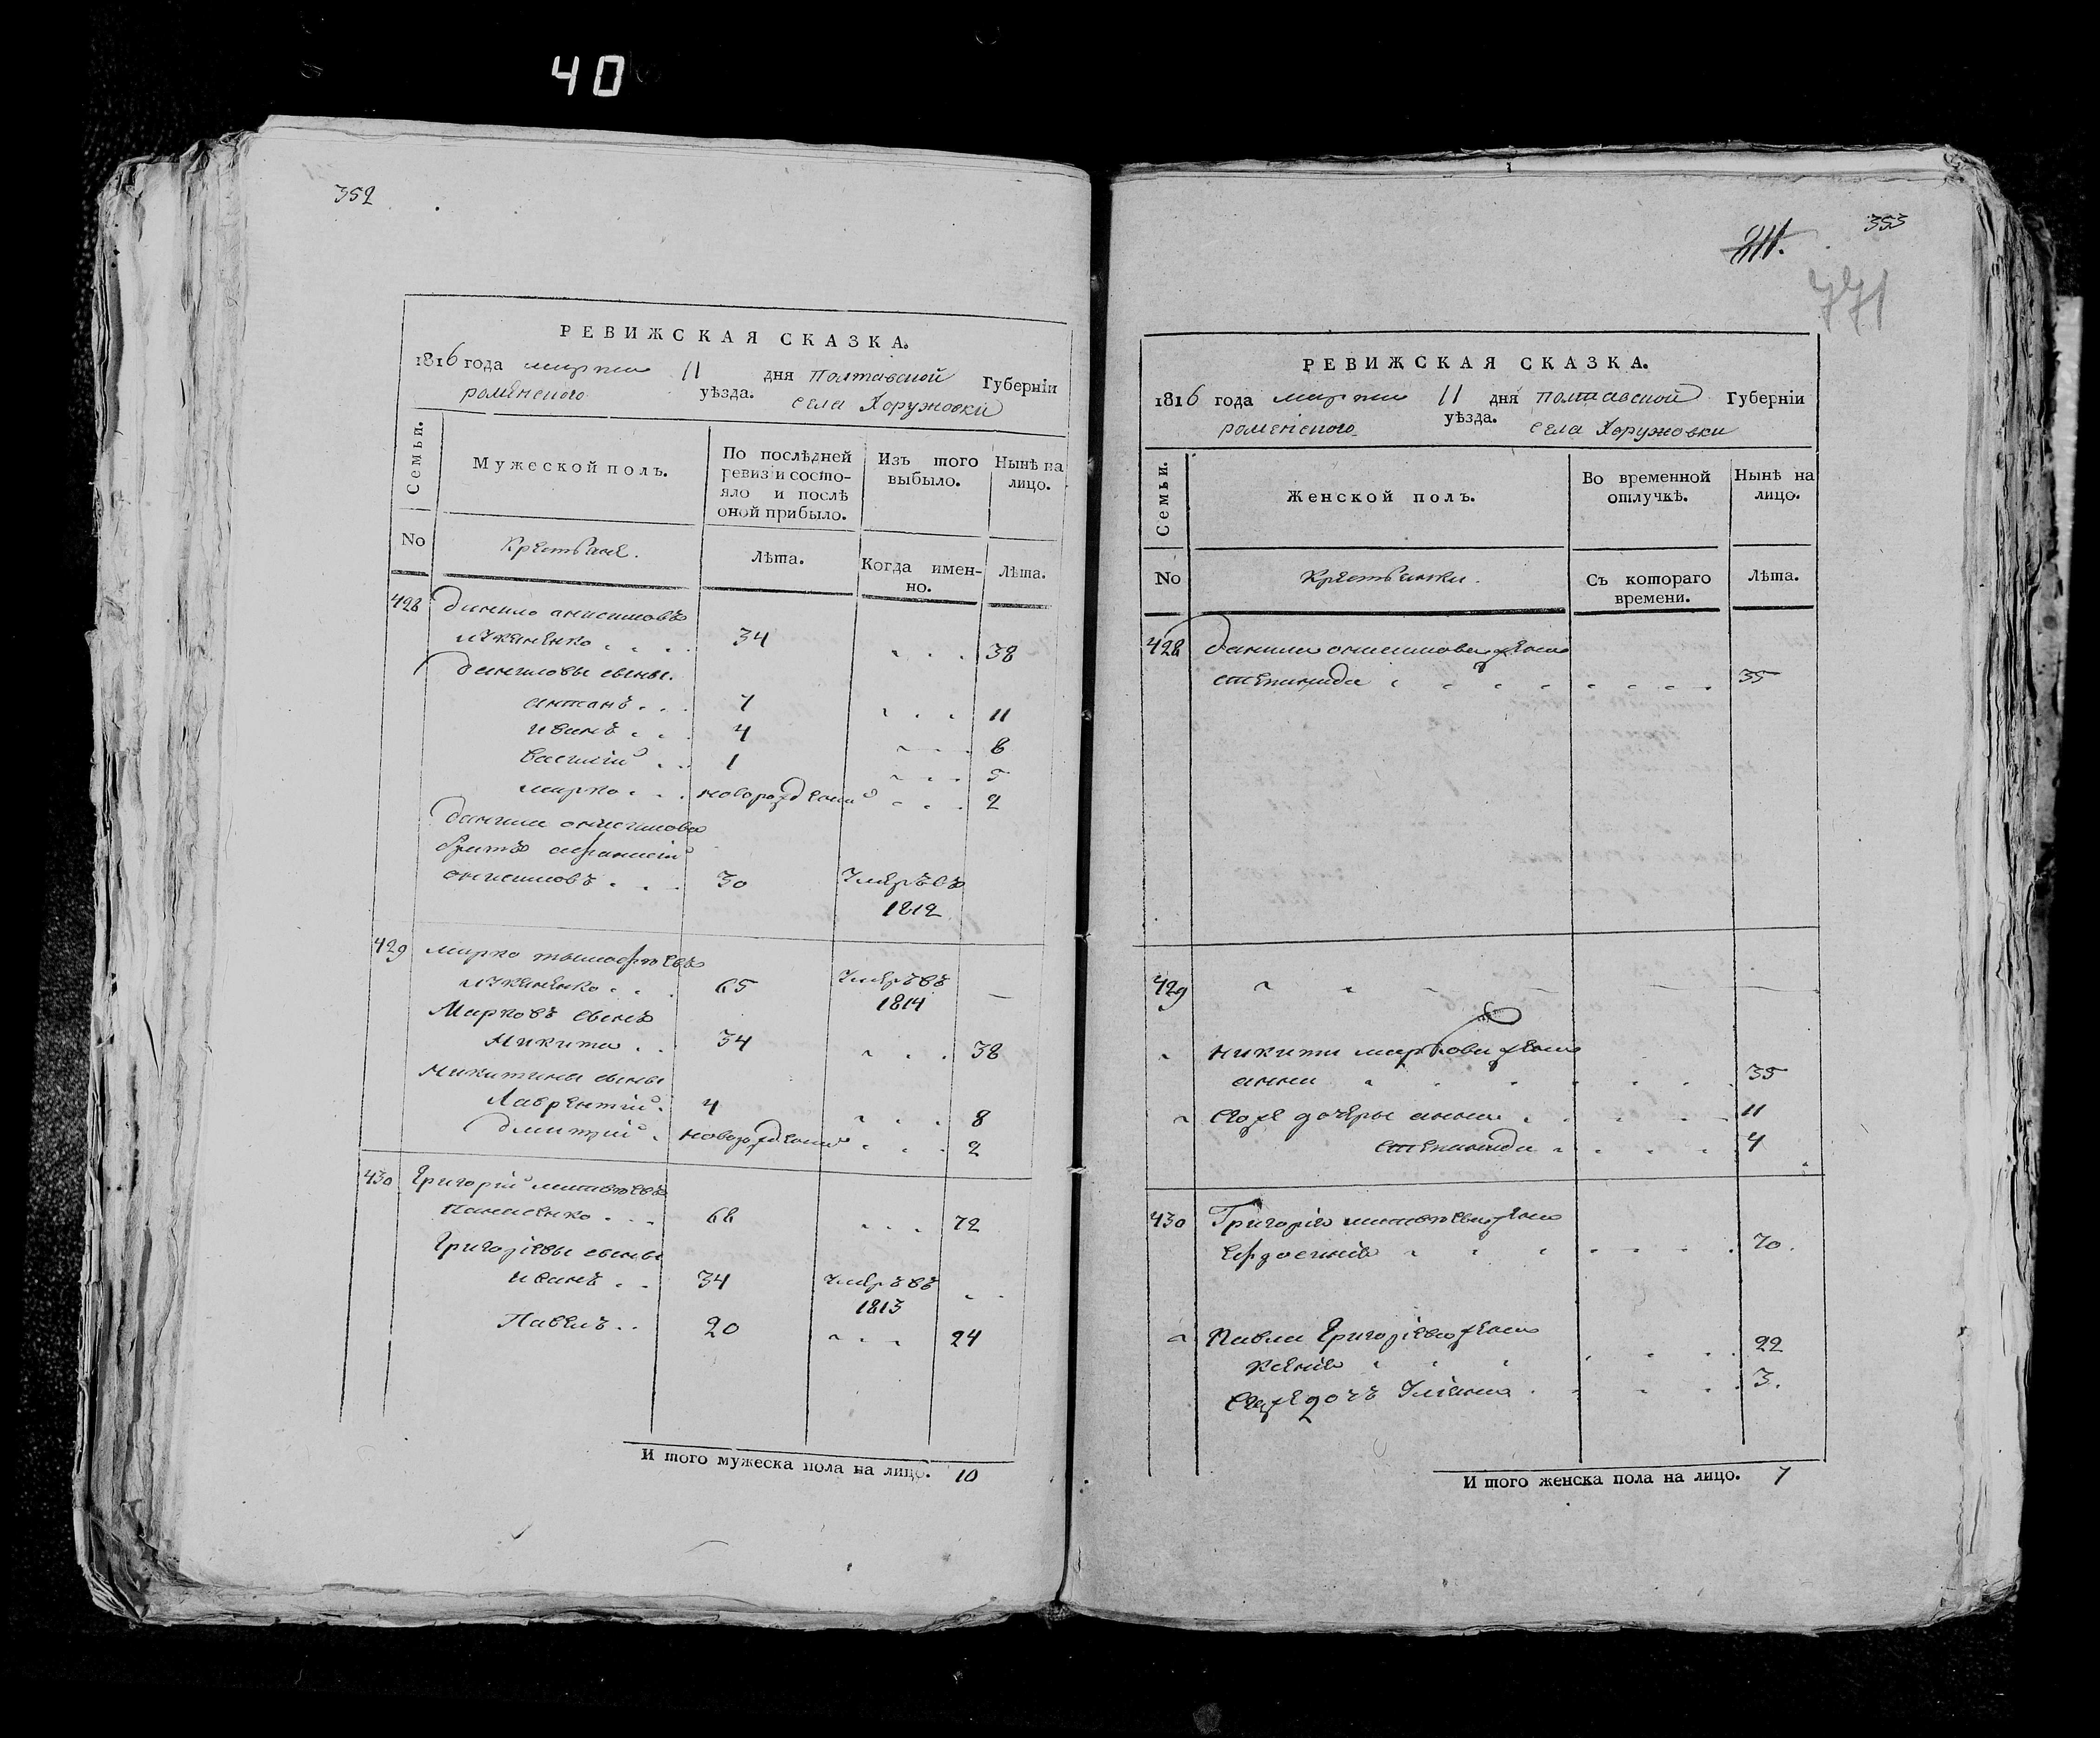 40
352
РЕВИЖСКАЯ СКАЗКА.
1816 года марта 11 дня Полтавской Губернїи
роменского уѣзда. села Хоружовки
Семьи.
Мужеской полъ.
По послѣдней ревизїи состояло и послѣ оной прибыло.
Изъ того выбыло.
Нынѣ на лицо.
No
Крестьяне.
Лѣта.
Когда именно.
Лѣта.
428 данило анисимовъ
34 38
даниловы сыны
антонъ 7 11
иванъ 4 8
василій 1 5
марко новорожденій 2
данила анисимова
братъ афанасій
анисимовъ 30 Умеръ въ
1812
429 марко тимофѣевъ
65 Умеръ въ
1814
Марковъ сынъ
Микита 34 38
Микитины сыны
Лаврентій 4 8
дмитрій новорожденій 2
430 Григорій матвѣевъ
68 72
Григорїевы сыны
иванъ 34 Умеръ въ
1813
Павелъ 20 24
И того мужеска пола на лицо. 10
353
771
РЕВИЖСКАЯ СКАЗКА.
1816 года марта 11 дня полтавской Губернїи
роменского уѣзда. села Хоружовки
Семьи.
Женской полъ.
Во временной отлучкѣ.
Нынѣ на лицо.
No
Крестьянки.
Съ котораго времени.
Лѣта.
428 данила анисимова жена
степанида 35
429
никити маркова жена
анна 35
его же дочеры анна 11
степанида 4
430 Григорія матвѣева жена
евдокїия 70.
Павла Григорїева жена
ксенія 22
его же дочъ Уліяна 3.
И того женска пола на лицо. 7